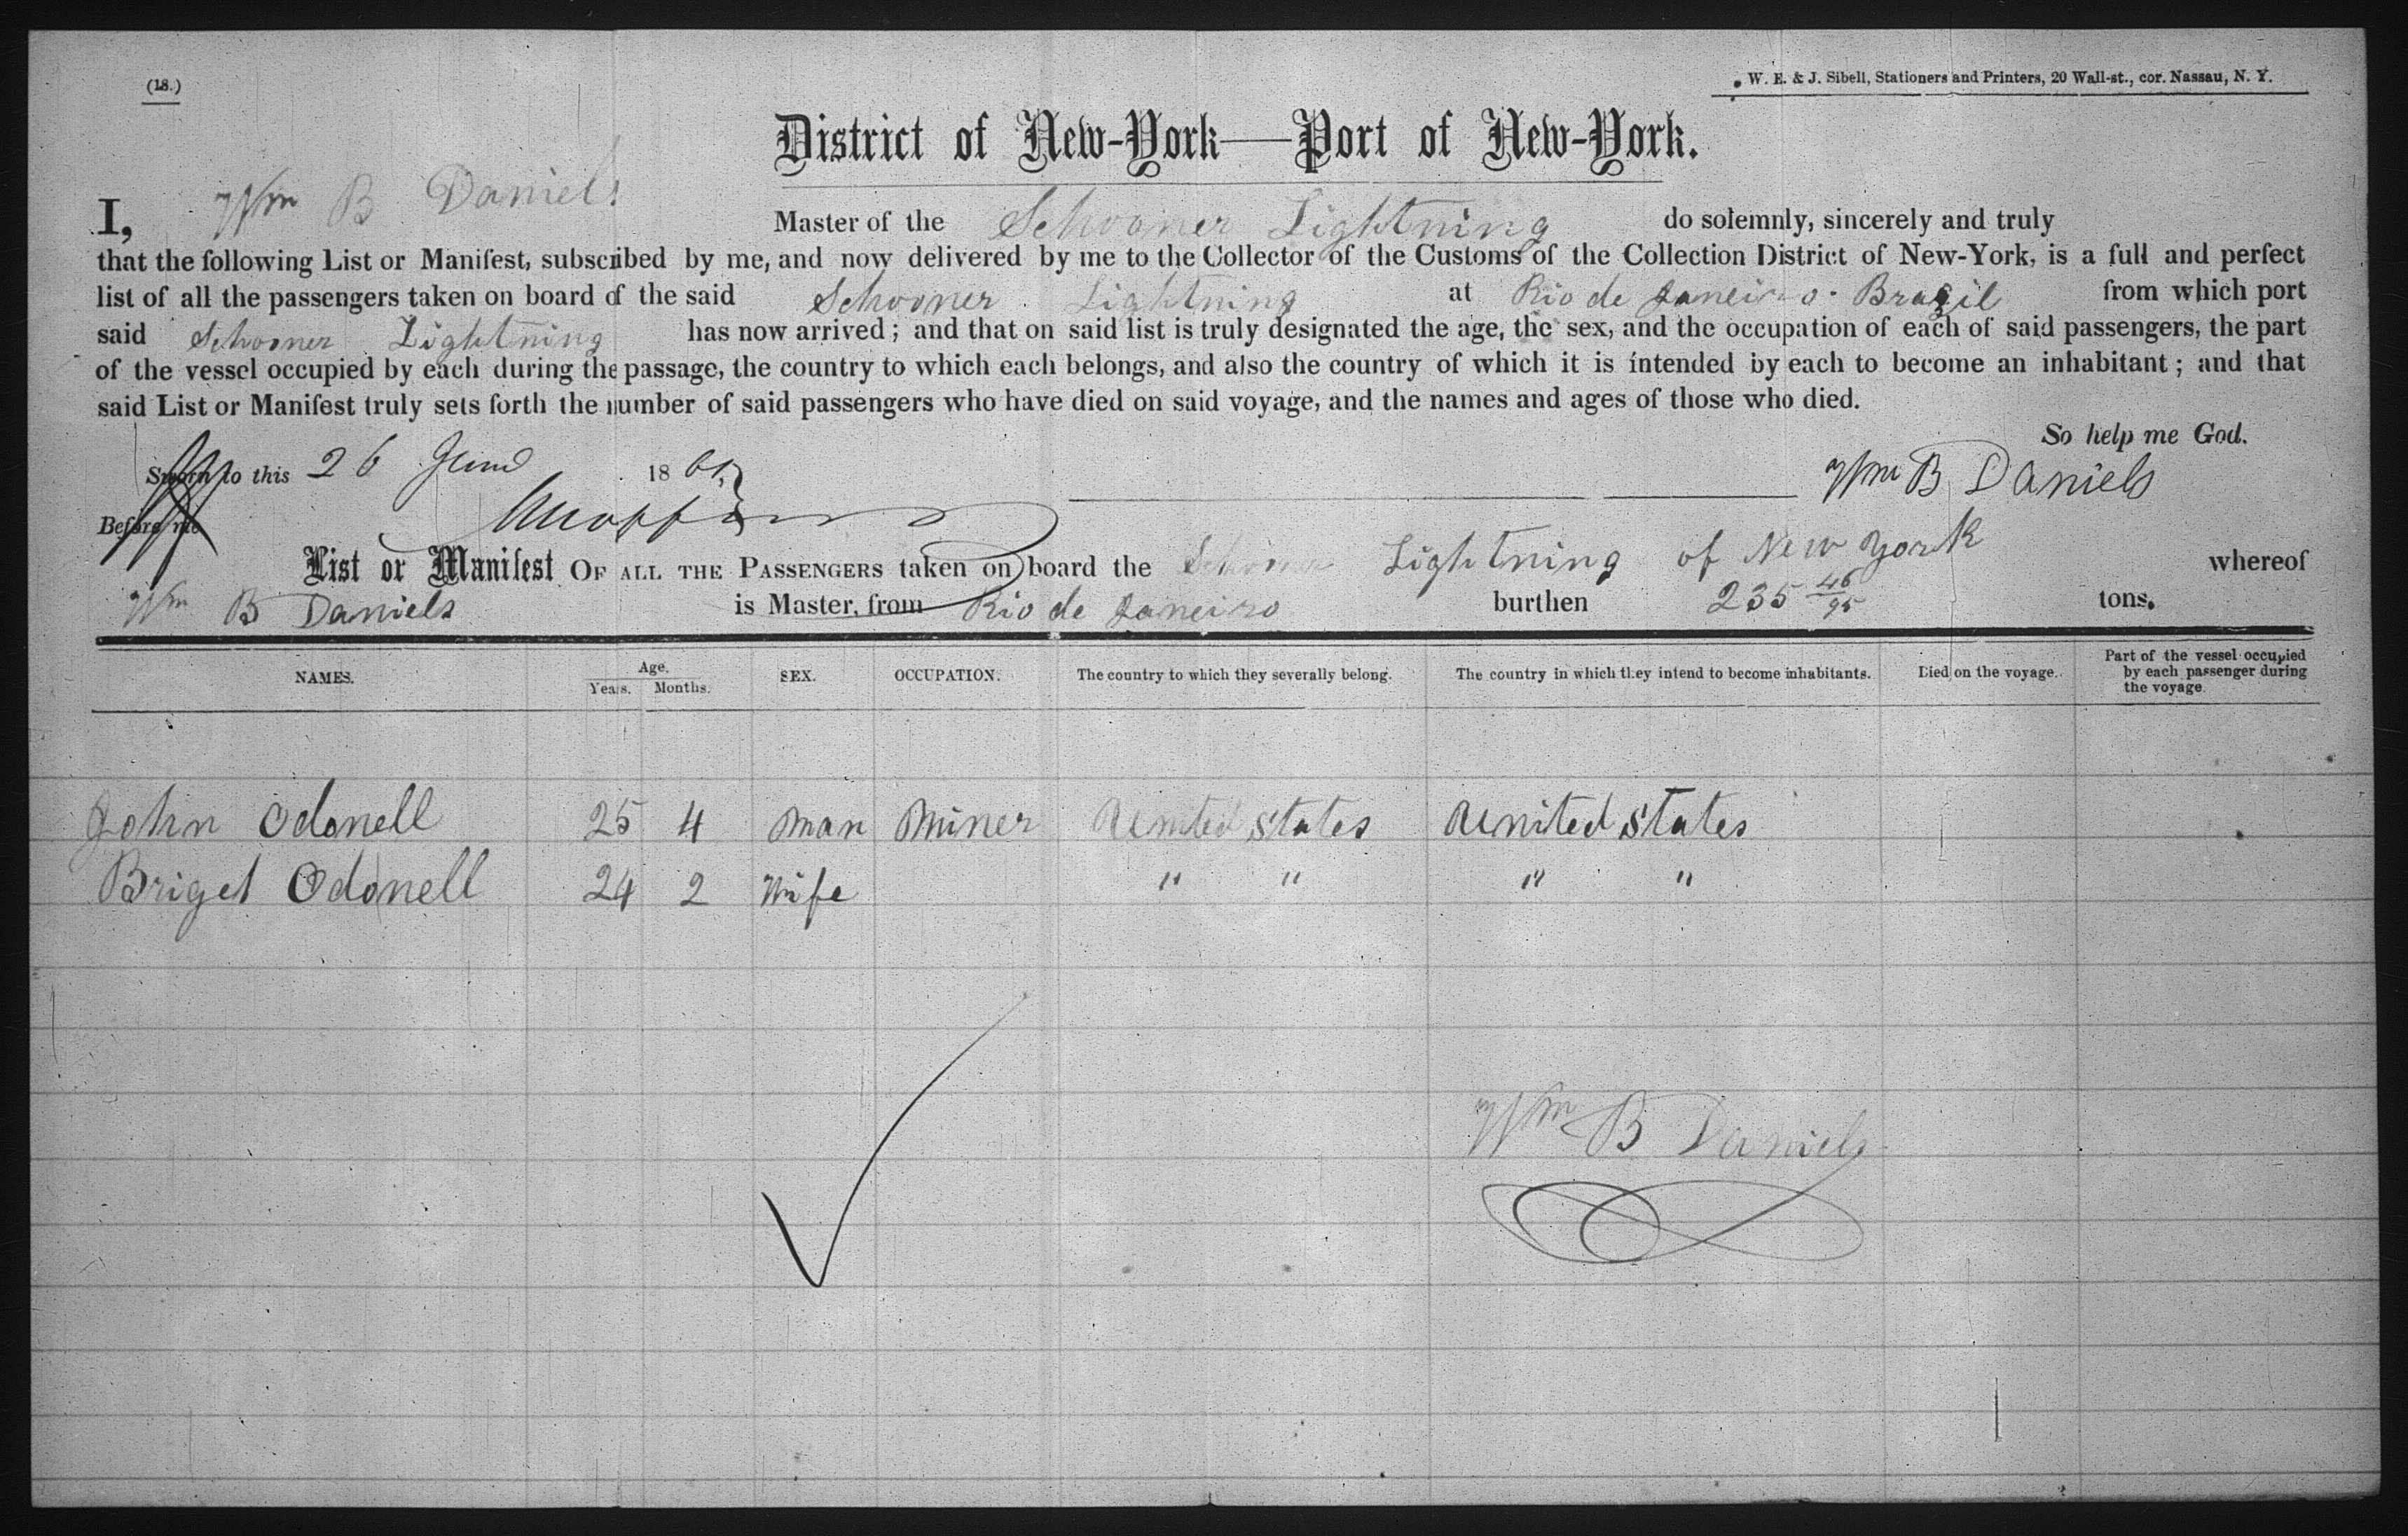 (18.)
W. E. & J. Sibell, Stationers and Printers, 20 Wall-st., cor. Nassau, N. Y.
District of New-York—Port of New-York.
I, Wm B Daniels Master of the Schooner Lightning do solemnly, sincerely and truly
that the following List or Manifest, subscribed by me, and now delivered by me to the Collector of the Customs of the Collection District of New-York, is a full and perfect
list of all the passengers taken on board of the said Schooner Lightning at Rio de Janeiro. Brazil from which port
said Schooner Lightning has now arrived; and that on said list is truly designated the age, the sex, and the occupation of each of said passengers, the part
of the vessel occupied by each during the passage, the country to which each belongs, and also the country of which it is intended by each to become an inhabitant; and that
said List or Manifest truly sets forth the number of said passengers who have died on said voyage, and the names and ages of those who died.
So help me God.
Sworn to this 26 June 1861, Wm B Daniels
Before me
List or Manifest OF ALL THE PASSENGERS taken on board the Schooner Lightning of New York whereof
Wm B Daniels is Master, from Rio de Janeiro burthen 235 46/95 tons.
NAMES. Age. Years. Months. SEX. OCCUPATION. The country to which they severally belong. The country in which they intend to become inhabitants. Died on the voyage. Part of the vessel occupied by each passenger during the voyage
John Odonell 25 4 man miner United States United States
Briget Odonell 24 2 Wife " " " "
Wm B Daniels